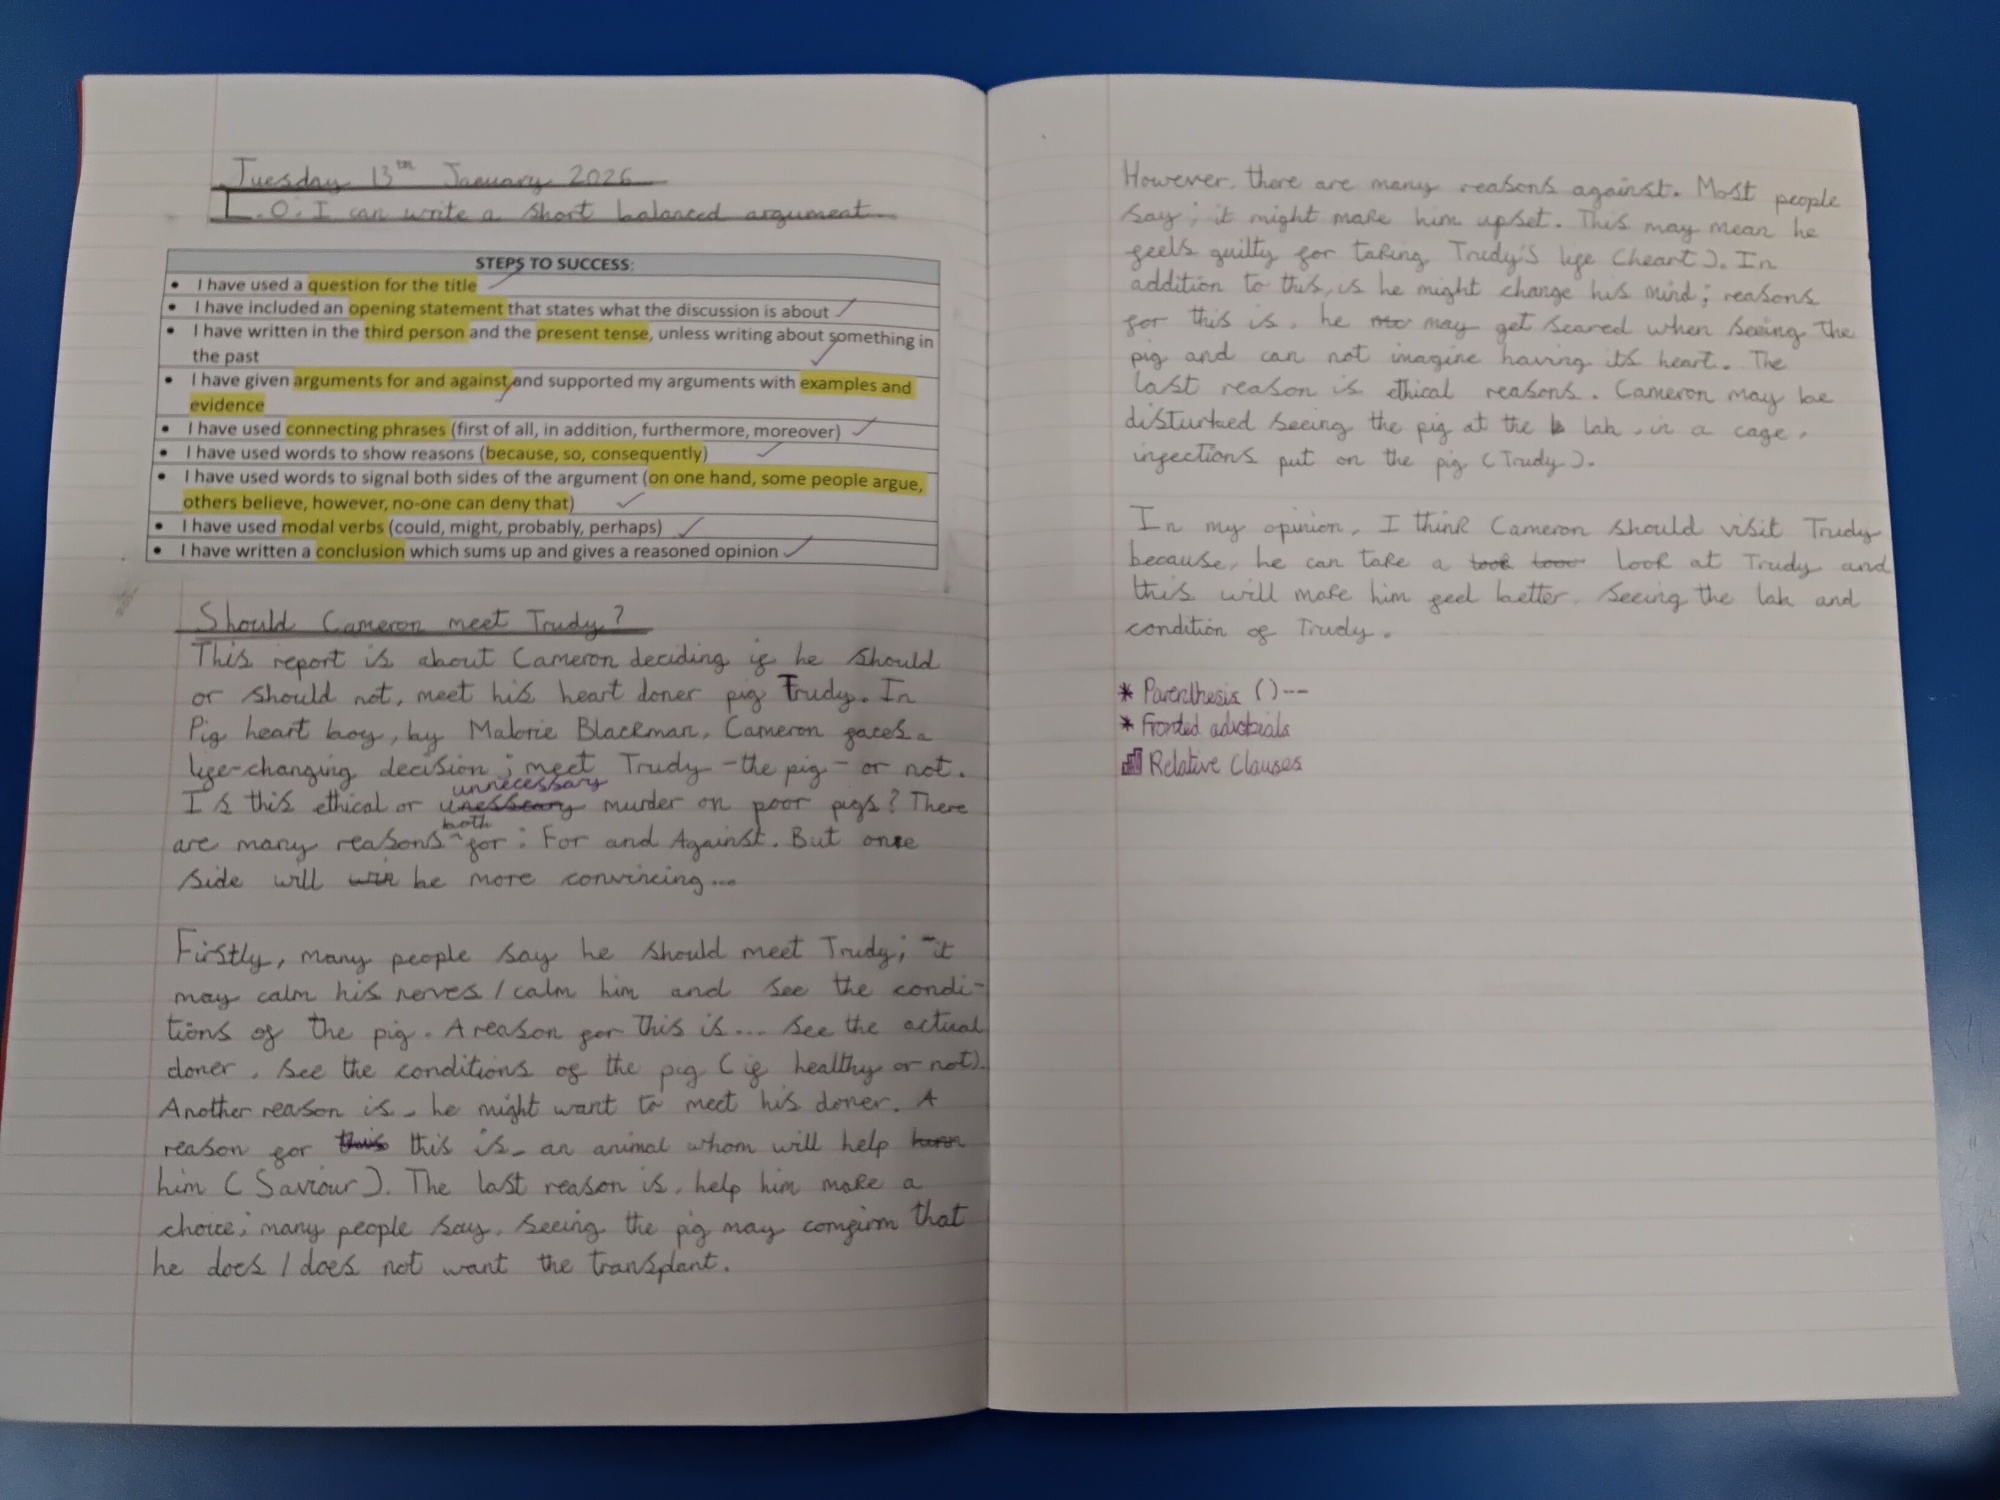 Tuesday 13th January 2026
L.O. I can write a short balanced argument.
STEPS TO SUCCESS:
• I have used a question for the title
• I have included an opening statement that states what the discussion is about
• I have written in the third person and the present tense, unless writing about something in
the past
• I have given arguments for and against and supported my arguments with examples and
evidence
• I have used connecting phrases (first of all, in addition, furthermore, moreover)
• I have used words to show reasons (because, so, consequently)
• I have used words to signal both sides of the argument (on one hand, some people argue,
others believe, however, no-one can deny that)
• I have used modal verbs (could, might, probably, perhaps)
• I have written a conclusion which sums up and gives a reasoned opinion
Should Cameron meet Trudy?
This report is about Cameron deciding if he should
or should not, meet his heart doner pig Trudy. In
Pig heart boy, by Malorie Blackman, Cameron faces a
life-changing decision; meet Trudy -the pig- or not.
unnecessary
Is this ethical or unessecary murder on poor pigs? There
both
are many reasons for: For and Against. But one
side will win be more convincing...
Firstly, many people say he should meet Trudy; it
may calm his nerves / calm him and see the condi-
tions of the pig. A reason for this is... see the actual
doner, see the conditions of the pig (if healthy or not).
Another reason is, he might want to meet his doner. A
reason for this this is, an animal whom will help him
him (Saviour). The last reason is, help him make a
choice; many people say, seeing the pig may comfirm that
he does / does not want the transplant.
However, there are many reasons against. Most people
say; it might make him upset. This may mean he
feels guilty for taking Trudy's life (heart). In
addition to this, is he might change his mind; reasons
for this is, he may get scared when seeing the
pig and can not imagine having its heart. The
last reason is ethical reasons. Cameron may be
disturbed seeing the pig at the lab, in a cage,
injections put on the pig (Trudy).
In my opinion, I think Cameron should visit Trudy
because, he can take a took look at Trudy and
this will make him feel better, seeing the lab and
condition of Trudy.
* Parenthesis ()--
* Fronted adverbials
Relative Clauses